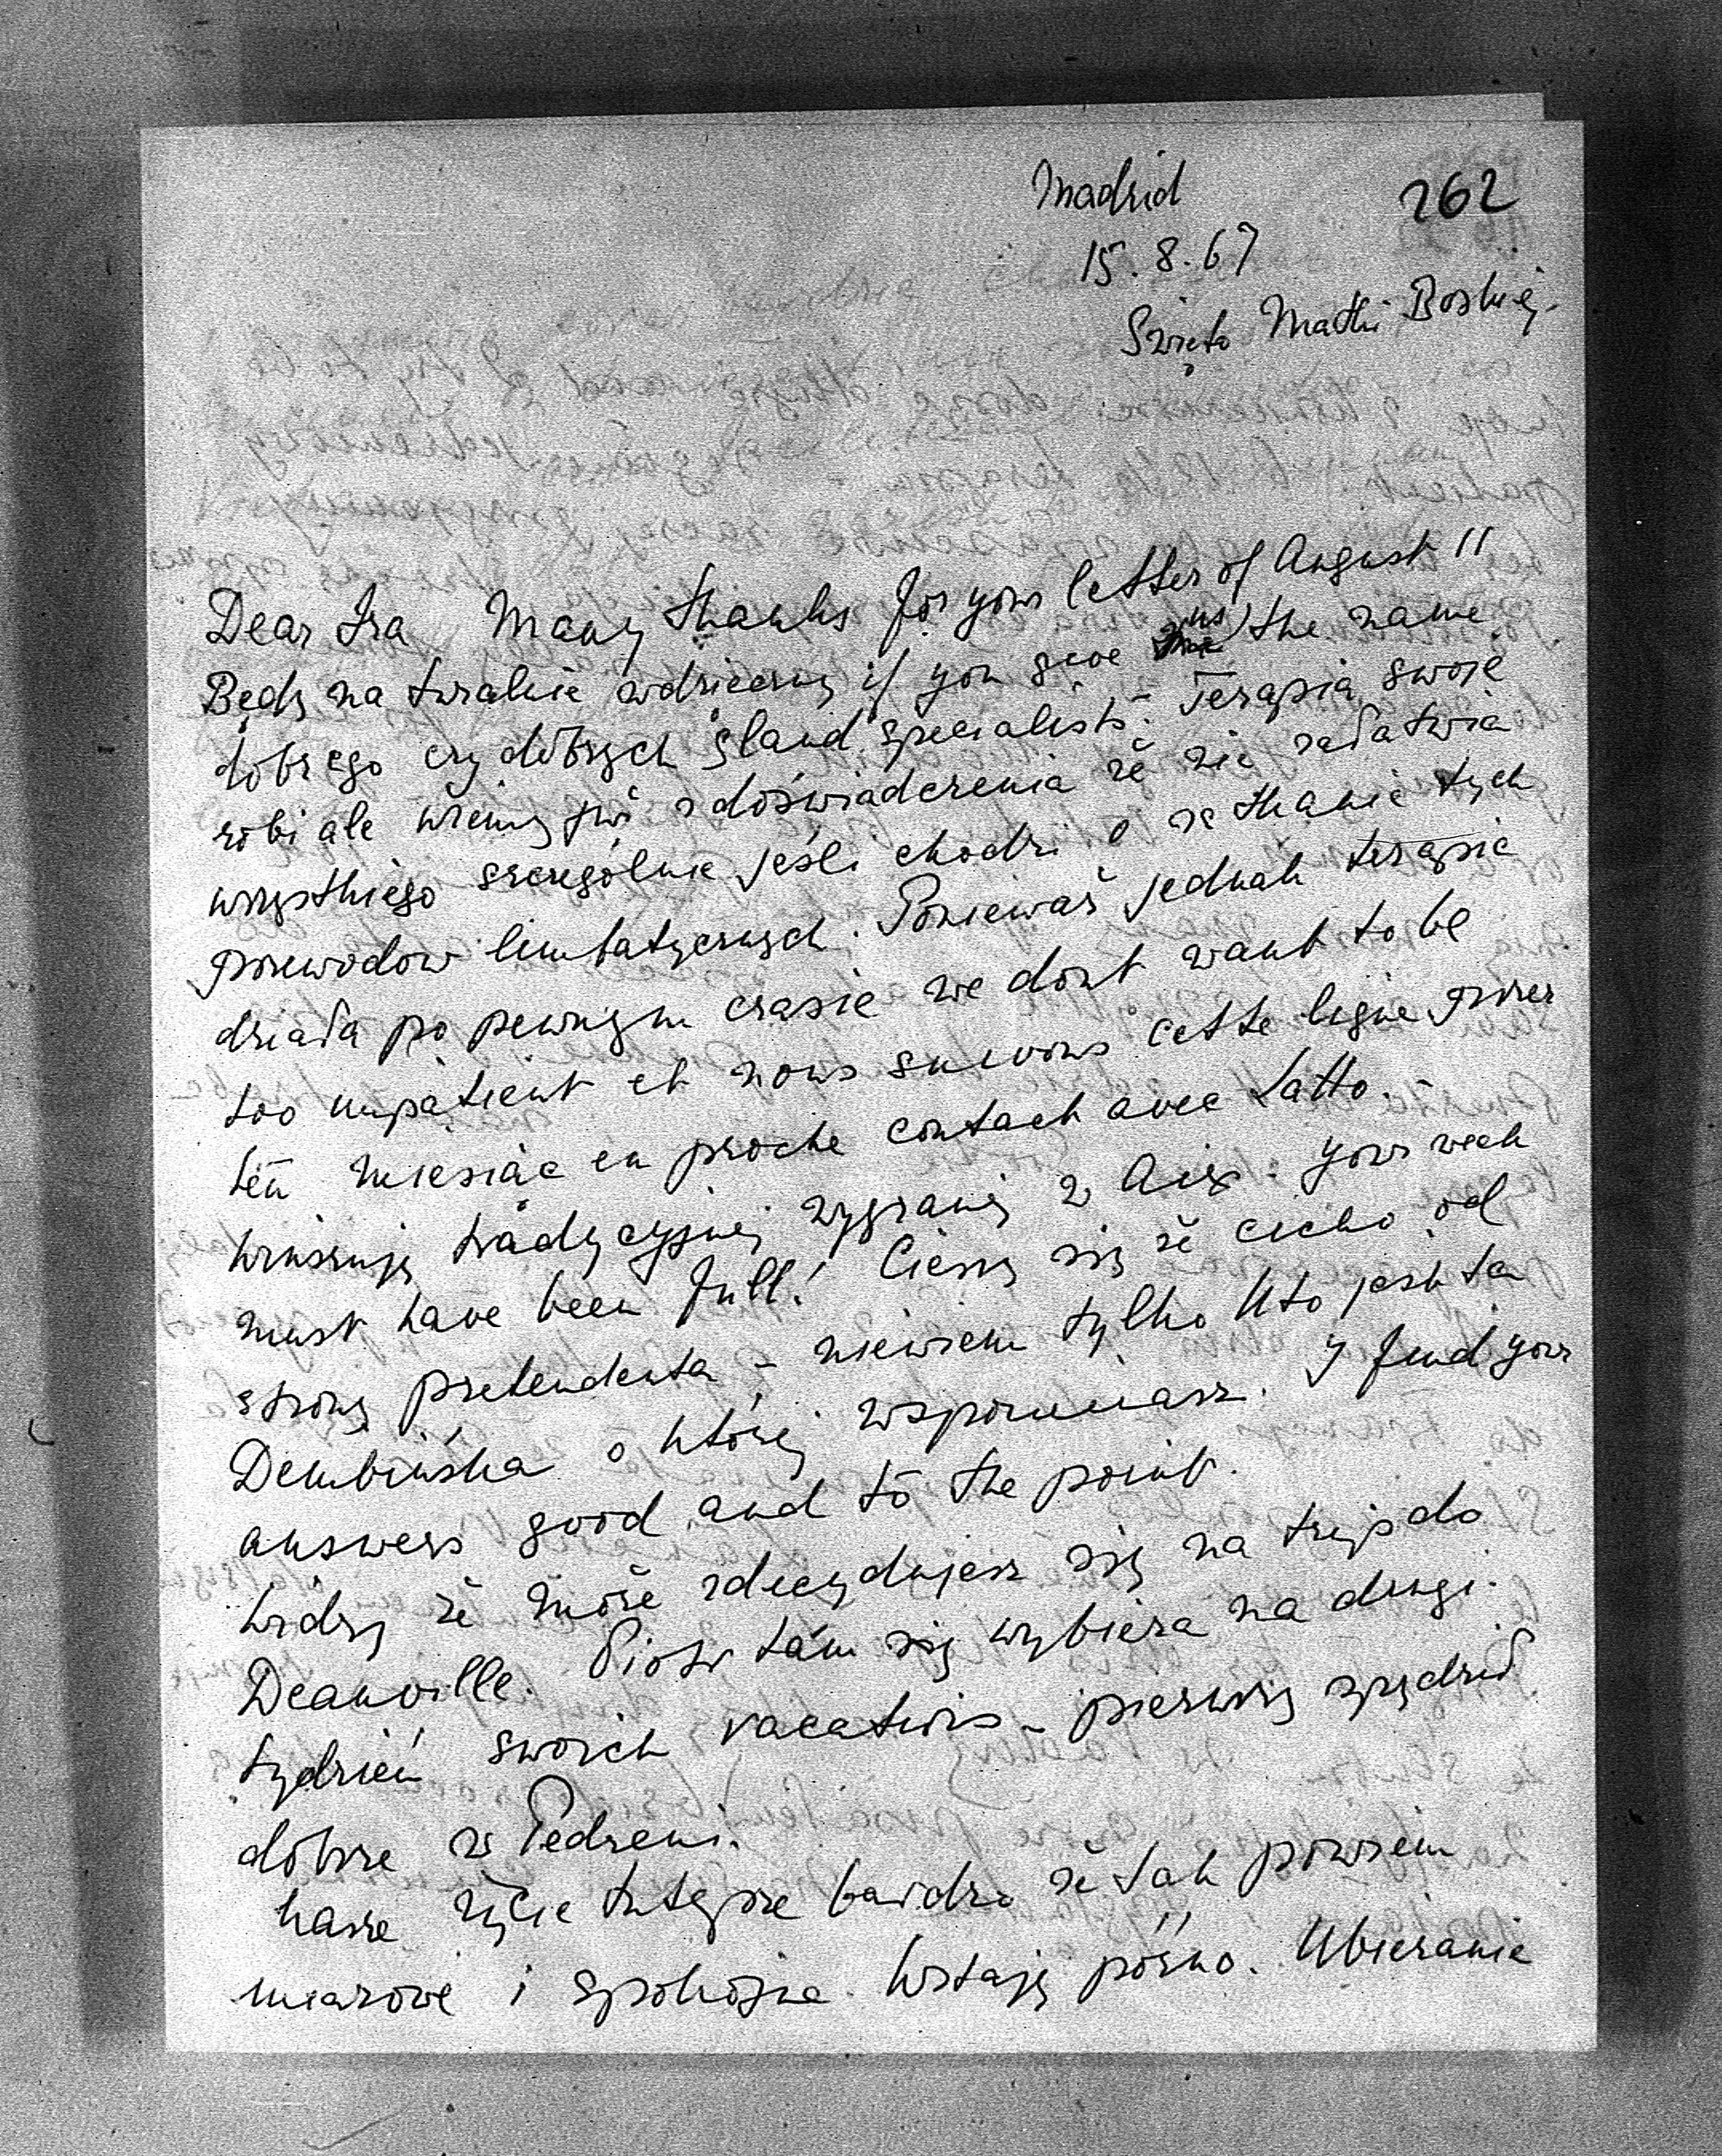 Madrid
262
15.8.67
Święto Matki Boskiej.
Dear Ira Many thanks for your letter of August 11
Będę na turalnie wdzięczny if you give us the name
dobrego czy dobrych gland specialists. - Terapia swoje
robi ale wiemy już z doświadczenia że nie załatwia
wszystkiego szczególnie jeśli chodzi o zatkanie tych
przewodów limfatycznych. Ponieważ jednak terapia
działa po pewnym czasie we dont want to be
too impatient et nous suivons cette ligne przez
ten miesiąc en proche contact avec Latto. -
Winszuję tradycyjnej wygranej w Aix. your week
must have been full! Cieszę się że cicho od
strony pretendenta - niewiem tylko kto jest ta
Dembińska o której wspominasz. I find your
answers good and to the point.
Widzę że może zdecydujesz się na trip do
Deauville. Piotr tam się wybiera na drugi
tydzień swoich vacations - pierwszy spędził
dobrze w Pedreni.
Nasze życie tutejsze bardzo że tak powiem
miarowe i spokojne. Wstaję późno. Ubieranie